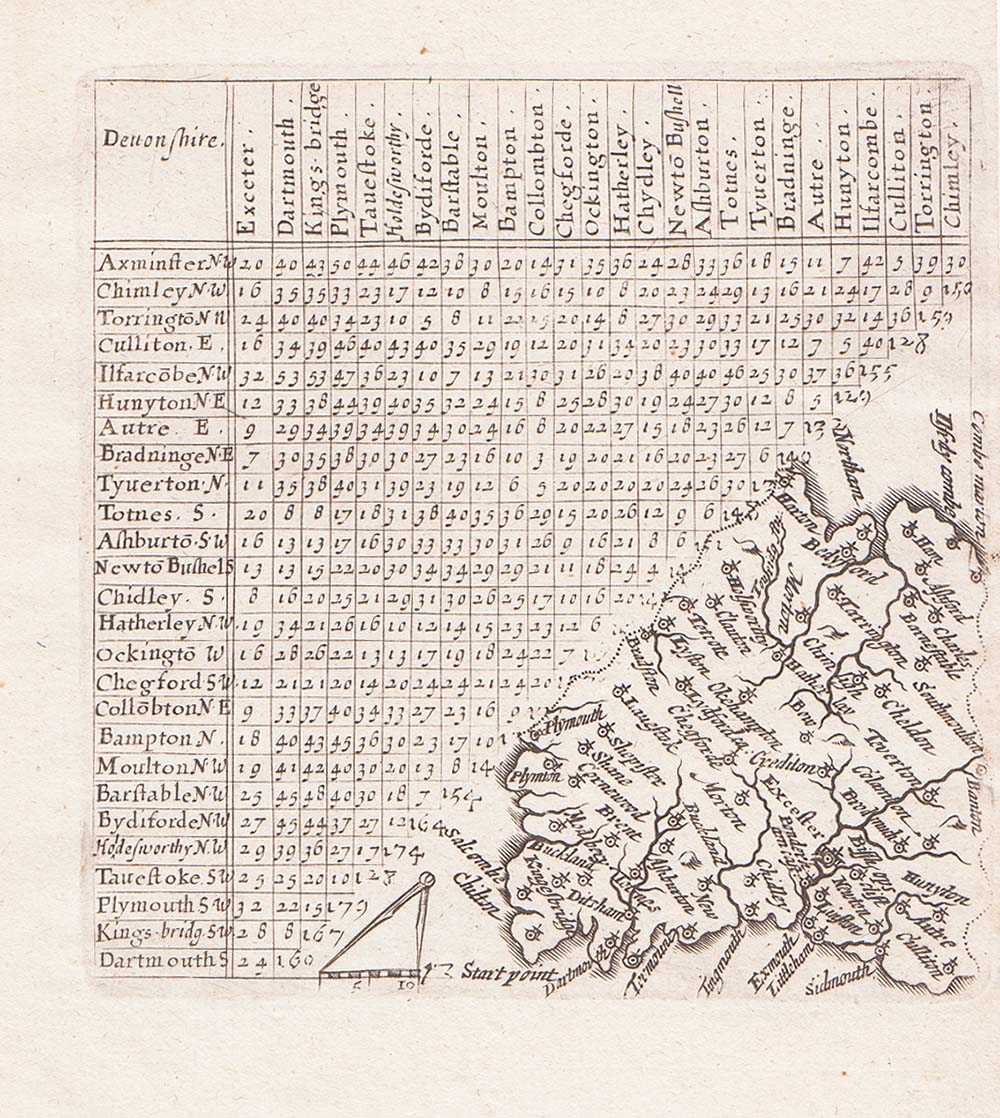 Deuonshire.
Exceter.
Dartmouth.
Kings-bridge
Plymouth.
Tauestoke.
Holdesworthy.
Bydiforde.
Barstable.
Moulton.
Bampton.
Collombton.
Chegforde.
Ockington.
Hatherley.
Chydley.
Newtō Bushell
Ashburton.
Totnes.
Tyuerton.
Bradninge.
Autre.
Hunyton.
Ilfarcombe.
Culliton.
Torrington
Chumley.
Axminster N.W 20 40 43 50 44 46 42 38 30 20 14 31 35 36 24 28 33 36 18 15 11 7 42 5 39 30
Chimley N.W 16 35 35 33 23 17 12 10 8 15 16 15 10 8 20 23 24 29 13 16 21 24 17 28 9 150
Torringtō N N 24 40 40 34 23 10 5 8 11 22 25 20 14 8 27 30 29 33 21 25 30 32 14 36 159
Culliton. E. 16 34 39 46 40 43 40 35 29 19 12 20 31 34 20 23 30 33 17 12 7 5 40 128
Ilfarcōbe N.W 32 53 53 47 36 23 10 7 13 21 30 31 26 20 38 40 40 46 25 30 37 36 155
Hunyton N.E 12 33 38 44 39 40 35 32 24 15 8 25 28 30 19 24 27 30 12 8 5 129
Autre E. 9 29 34 39 34 39 34 30 24 16 8 20 22 27 15 18 23 26 12 7
Bradninge N.E 7 30 35 38 30 30 27 23 16 10 3 19 20 21 16 20 23 27 6 149
Tyuerton.N. 11 35 38 40 31 39 23 19 12 6 5 20 20 20 20 24 26 30
Totnes. S. 20 8 8 17 18 31 38 40 35 36 29 15 20 26 12 9 6
Ashburtō.S.W 16 13 13 17 16 30 33 33 30 31 26 9 16 21 8 6
Newtō Bushel S 13 13 15 22 20 30 34 34 29 29 21 11 18 24 4
Chidley. S. 8 16 20 25 21 29 31 30 26 25 17 10 16 20
Hatherley N.W 19 34 21 26 16 10 12 14 15 23 23 12 6
Ockingtō W 16 28 26 22 13 13 17 19 18 24 22 7
Chegford S.W 12 21 21 20 14 20 24 24 21 24 20
Collōbton N.E 9 33 37 40 34 33 27 23 16 9
Bampton N. 18 40 43 45 36 30 23 17 10
Moulton N.W 19 41 42 40 30 20 13 8 14
Barstable N.W 25 45 48 40 30 18 7 154
Bydiforde N.W 27 45 44 37 27 12 164
Holdesworthy N.W 29 39 36 27 17 174
Tauestoke. S.W 25 25 20 10 128
Plymouth S.W 32 22 15 179
Kings-bridg. S.W 28 8 167
Dartmouth S 24 160
5 10
Northam
Combe
Harton
Bedyford
Hen
Alsford
Charles
Barnestable
Torrington
Southmoulton
Holsworthy
Tetcott
Bradston
Lyston
Okehampton
Lydforde
Chegford
Lauestock
Chimligh
Cheldon
Teverton
Columton
Bampton
Bow
Crediton
Plymouth
Plimton
Shepistor
Shane
Cornwood
Brent
Modbery
Morton
Excester
Buckland
Buckland
Kingsbridge
Ditsham
Totnes
Ashburton
New
Chidley
Hunydon
Autre
Culliton
Salcomb
Chilton
Start point
Dartmouth
Exmouth
Littlcham
Sidmouth